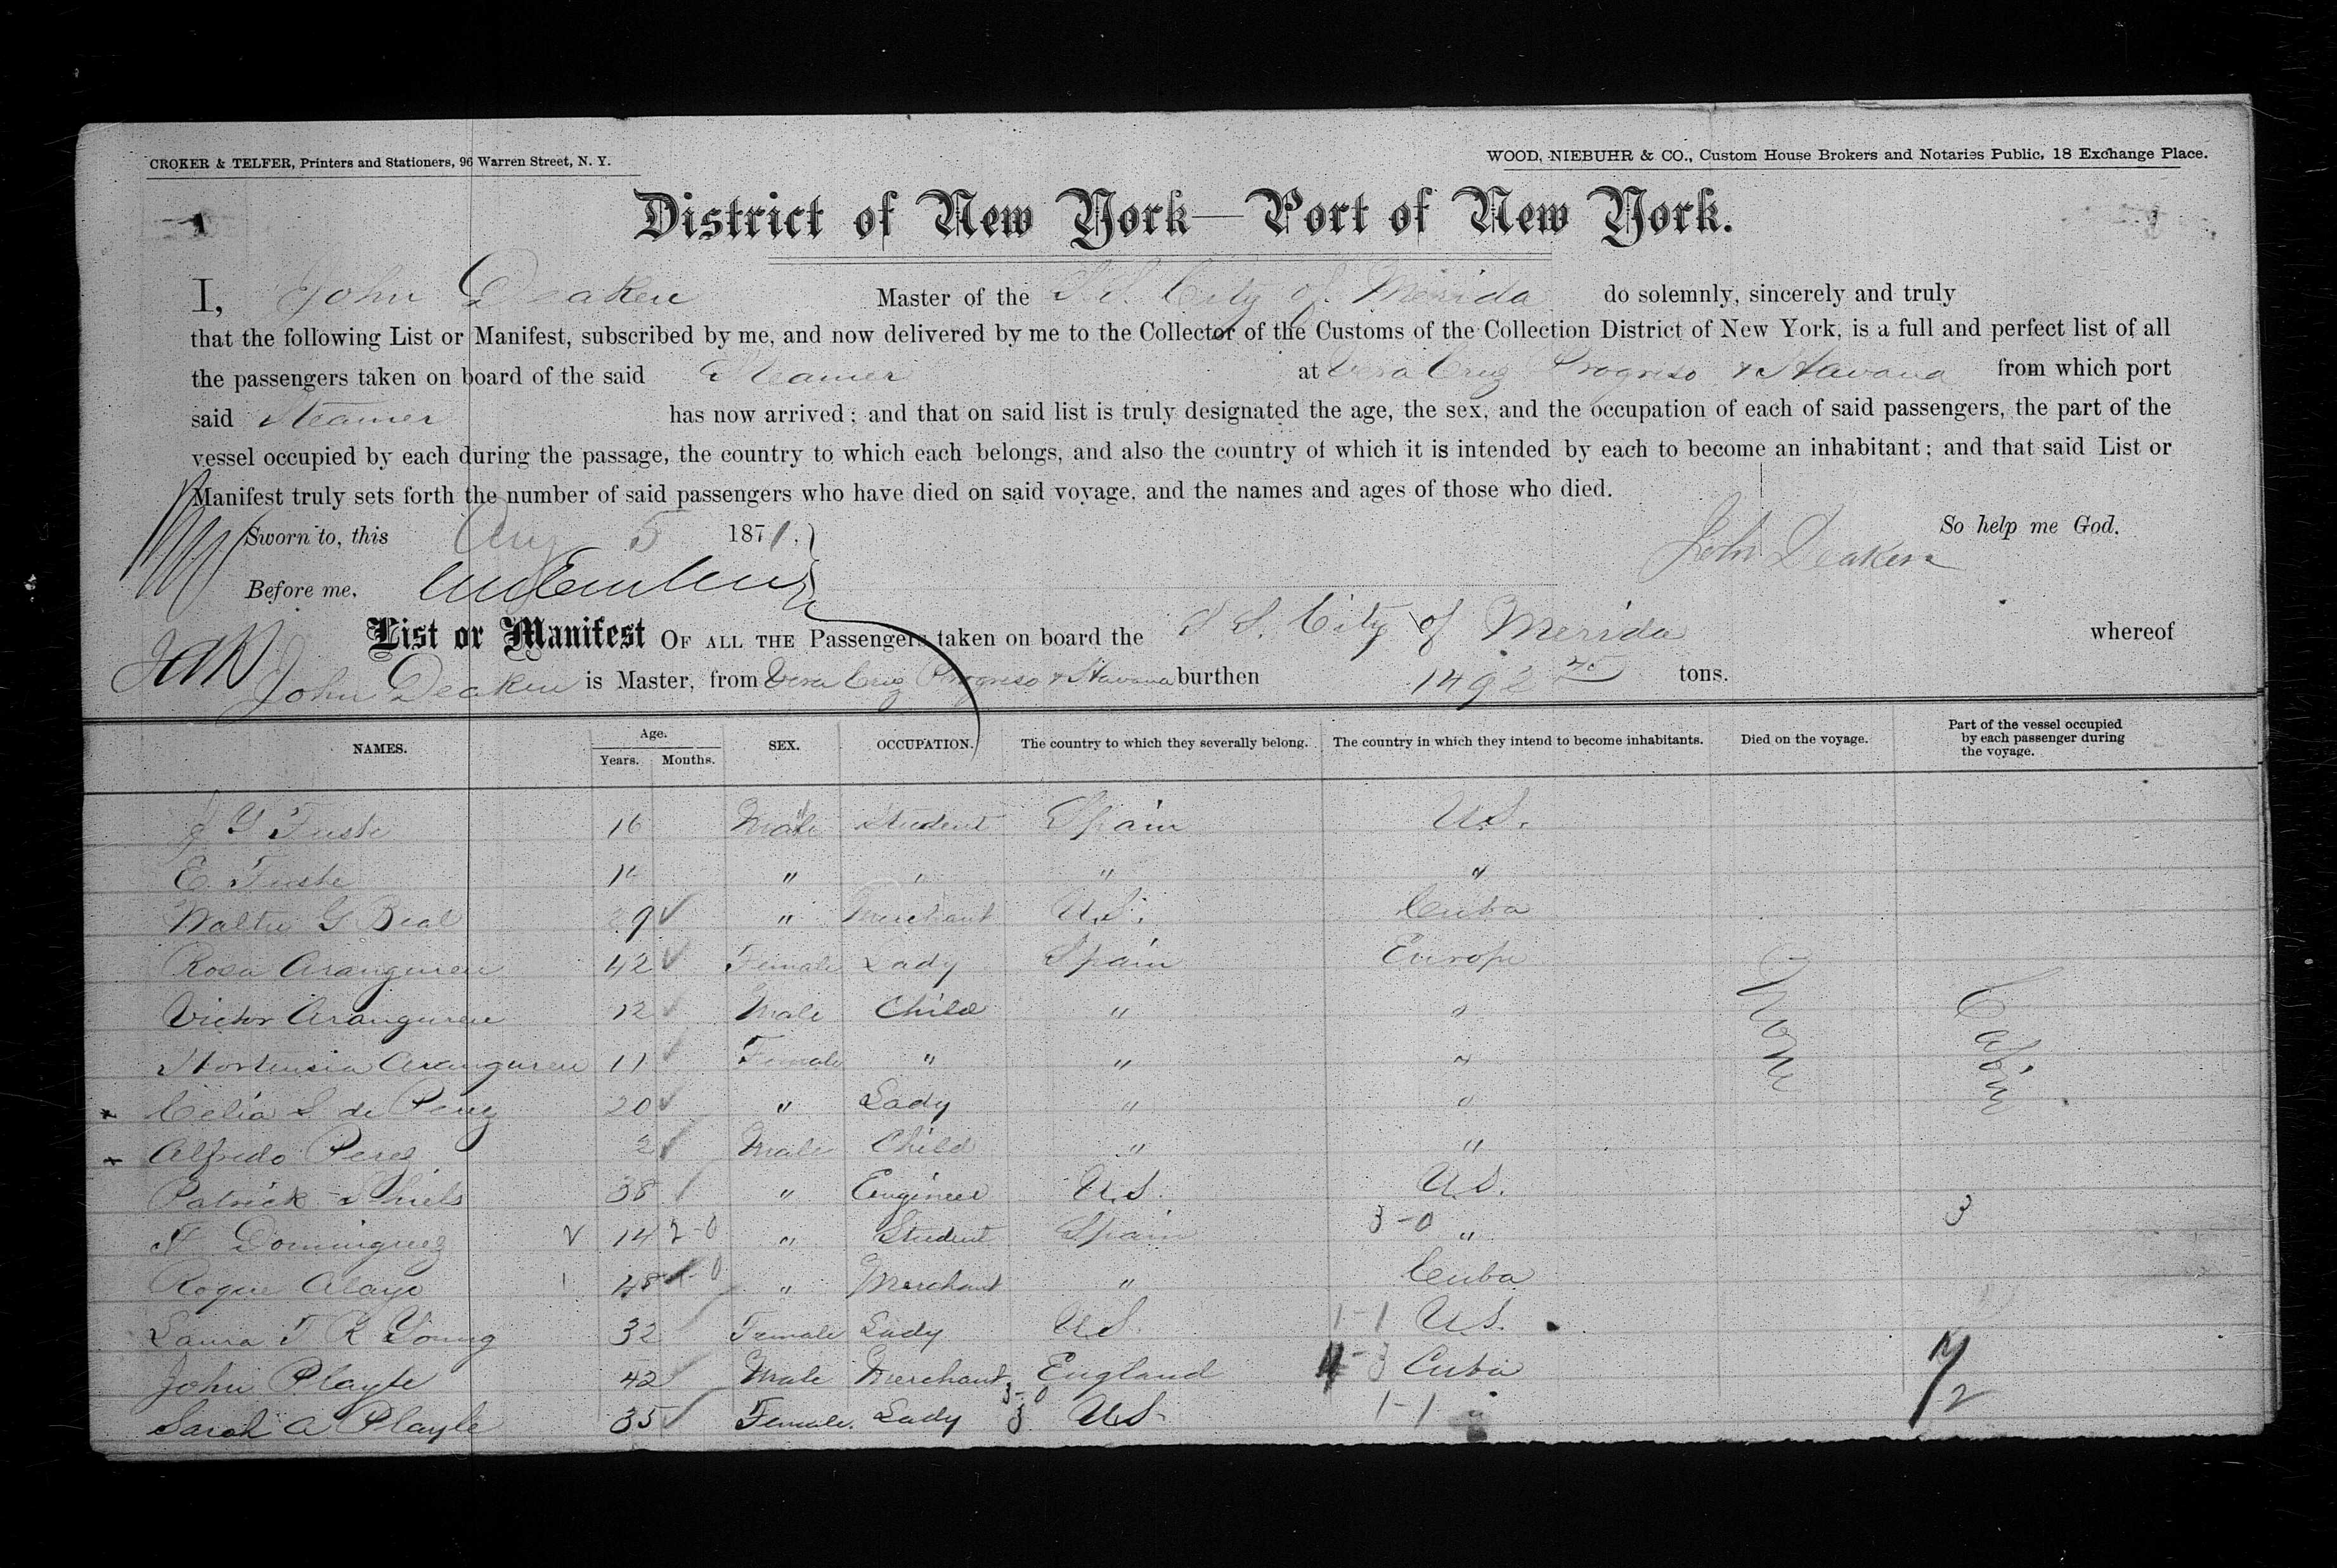 CROKER & TELFER, Printers and Stationers, 96 Warren Street, N. Y.
WOOD, NIEBUHR & CO., Custom House Brokers and Notaries Public, 18 Exchange Place.
District of New York—Port of New York.
I, John Deaken Master of the S.S. City of Merida do solemnly, sincerely and truly
that the following List or Manifest, subscribed by me, and now delivered by me to the Collector of the Customs of the Collection District of New York, is a full and perfect list of all
the passengers taken on board of the said Steamer at Vera Cruz Progreso & Havana from which port
said Steamer has now arrived; and that on said list is truly designated the age, the sex, and the occupation of each of said passengers, the part of the
vessel occupied by each during the passage, the country to which each belongs, and also the country of which it is intended by each to become an inhabitant; and that said List or
Manifest truly sets forth the number of said passengers who have died on said voyage, and the names and ages of those who died.
Sworn to, this Aug 5 1871. So help me God.
John Deaken
Before me,
List or Manifest OF ALL THE Passengers taken on board the S S. City of Merida whereof
John Deaken is Master, from Vera Cruz Progreso & Havana burthen 1492 45 tons.
NAMES. Age. Years. Months. SEX. OCCUPATION. The country to which they severally belong. The country in which they intend to become inhabitants. Died on the voyage. Part of the vessel occupied by each passenger during the voyage.
16 Male Student Spain U.S.
E. " " " "
Walter G Beal 29 " Merchant U.S. Cuba
Rosa Aranguren 42 Female Lady Spain Europe
Victor Aranguren 12 Male Child " " None Cabin
Hortensia Aranguren 11 Female " " "
Celia S de Perez 20 " Lady " "
Alfredo Perez 2 Male Child " "
Patrick Shiels 38 " Engineer U.S. U.S.
Dominguez 14 2-0 " Student Spain 3-0 " 3
Roque Alayo 48 " Merchant " Cuba
Laura T R Young 32 Female Lady U.S. 1-1 U.S.
John Playle 42 Male Merchant England 4-3 Cuba
Sarah A Playle 35 Female. Lady 3-0 3 U.S. 1-1 "